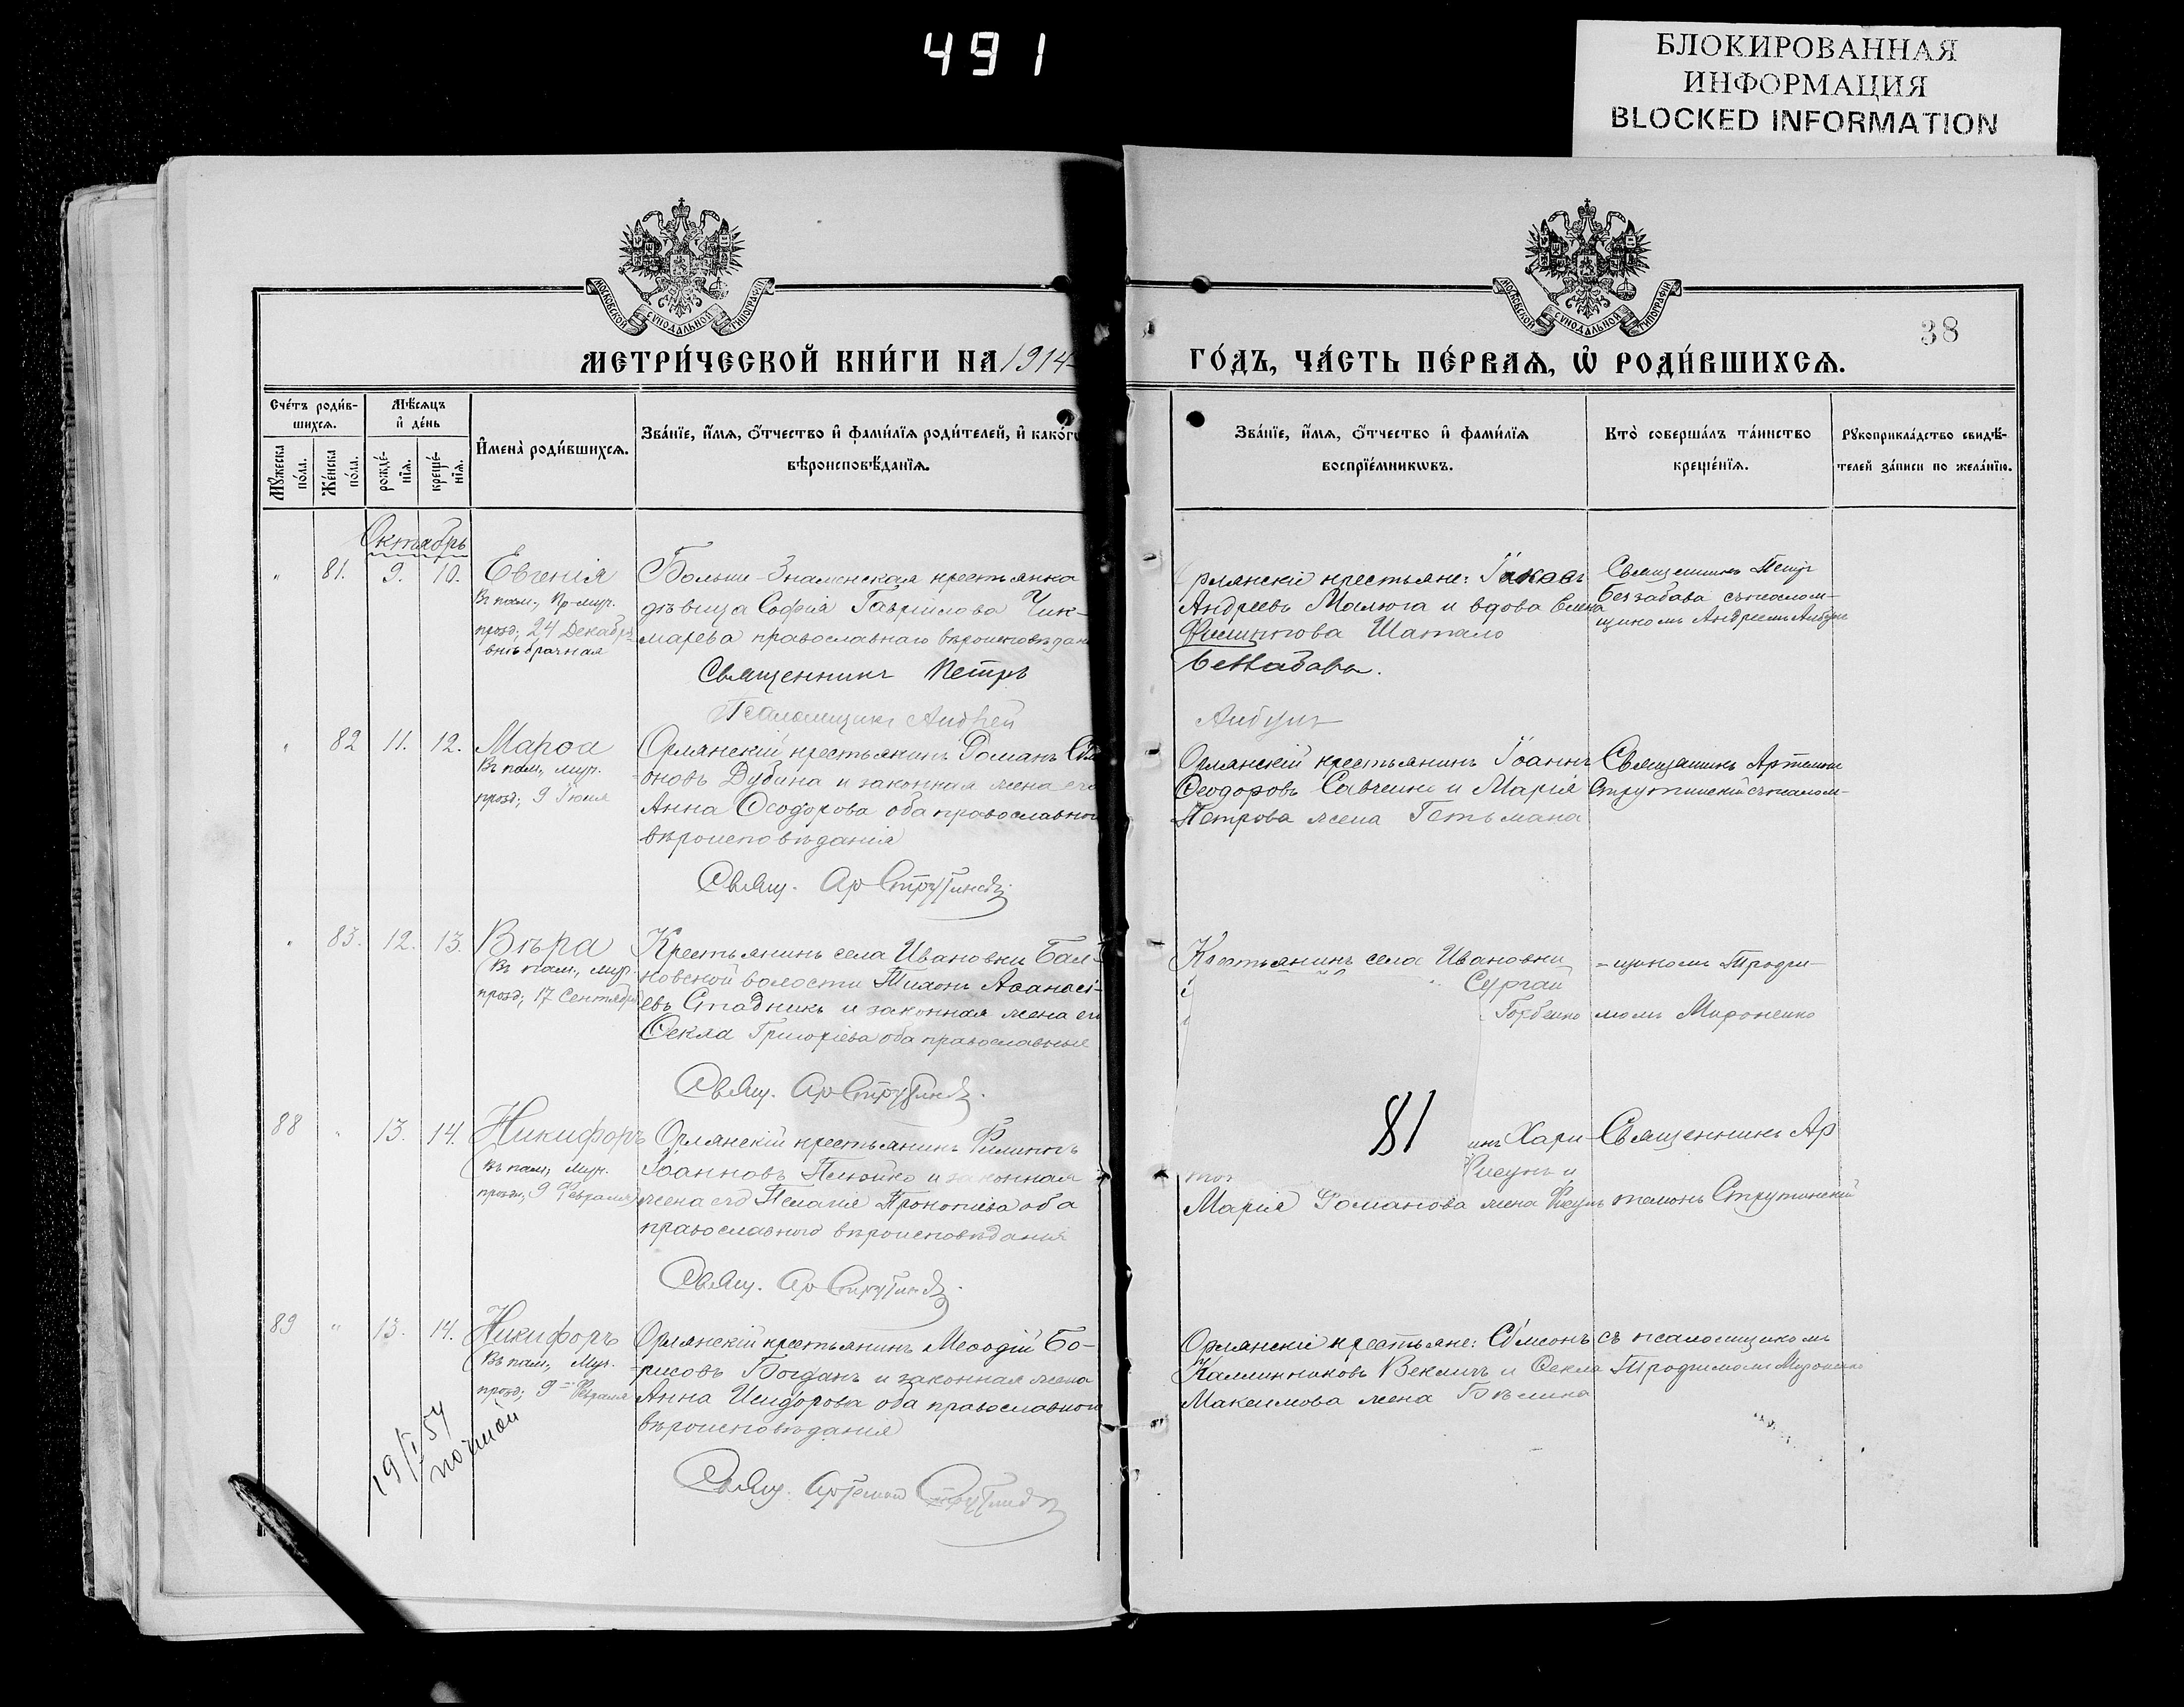 491
БЛОКИРОВАННАЯ
ИНФОРМАЦИЯ
BLOCKED INFORMATION
МОСКОВСКОЙ СѴНОДАЛЬНОЙ ТИПОГРАФІИ
МОСКОВСКОЙ СѴНОДАЛЬНОЙ ТИПОГРАФІИ
38
МЕТРИ́ЧЕСКОЙ КНИ́ГИ НА 1914
ГО́ДЪ, ЧА́СТЬ ПЕ́РВАѦ, Ѽ РОДИ́ВШИХСѦ.
Сче́тъ роди́в-
шихсѧ.
Мꙋ́жеска по́ла.
Же́нска по́ла.
Мѣ́сѧцъ
и҆ де́нь
рожде́-
нїѧ.
креще́-
нїѧ.
И҆мена̀ роди́вшихсѧ.
Зва́нїе, и҆́мѧ, ѻ҆́тчество и҆ фами́лїѧ роди́телей, и҆ како́гѡ
вѣроисповѣ́данїѧ.
Зва́нїе, и҆́мѧ, ѻ҆́тчество и҆ фами́лїѧ
воспрїе́мникѡвъ.
Кто̀ соверша́лъ та́инство
креще́нїѧ.
Рꙋкоприкла́дство свидѣ́-
телей за́писи по жела́нїю.
Октябрь
" 81. 9. 10. Евгенія
Въ пам. Пр-муч.
празд. 24 Декабр.
внѣбрачная
Больше-Знаменская крестьянка
дѣвица Софія Гавріилова Чик-
марева православнаго вѣроисповѣдан
Священникъ Петръ
Псаломщикъ Андрей
рлянскіе крестьяне: Іаковъ
Андреевъ Малюга и вдова Елена
Филиппова Шатало
Беззабава.
Священникъ Петръ
Беззабава съ псалом-
щикомъ Андреемъ
" 82 11. 12. Марѳа
Въ пам. муч.
празд. 9 Іюня
Орлянскій крестьянинъ Романъ
оновъ Дубина и законная жена его
Анна Ѳеодорова оба православнаго
вѣроисповѣданія
Свящ. Ар Струтинскій
Орлянскій крестьянинъ Іоаннъ
Ѳеодоровъ Савченко и Марія
Петрова жена Гетьмана
Священникъ Артемонъ
Струтинскій съ псалом-
" 83. 12. 13. Вѣра
(Въ пам. муч.
празд. 17 Сентября)
Крестьянинъ села Ивановки Бал-
ковской волости Тихонъ Аѳанасі-
евъ Спадникъ и законная жена его
Ѳекла Григоріева оба православные
Свящ. Ар Струтинскій.
Крестьянинъ села Ивановки
Сергѣй
Горбенко
-щикомъ Трофи-
момъ Мироненко
88 " 13. 14. Никифоръ
(Въ пам. муч.
празд. 9 Февраля)
Орлянскій крестьянинъ Филиппъ
Іоанновъ и законная
жена его Пелагія Прокопіева оба
православного вѣроисповѣданія
Свящ. Ар Струтинскій.
81
инъ Хари-
и
Марія Романова жена
Священникъ Ар
темонъ Струтинскій
89 " 13. 14. Никифоръ
(Въ пам. муч.
празд. 9 Февраля
Орлянскій крестьянинъ Меѳодій Бо-
рисовъ Богданъ и законная жена
Анна Исидорова оба православного
вѣроисповѣданія
Свящ. Артемонъ Струтинскій
Орлянскіе крестьяне: Сѵмеонъ
Каллинниковъ Векличъ и Ѳекла
Максимова жена
съ псаломщикомъ
Трофимомъ Мироненко
19/I 54